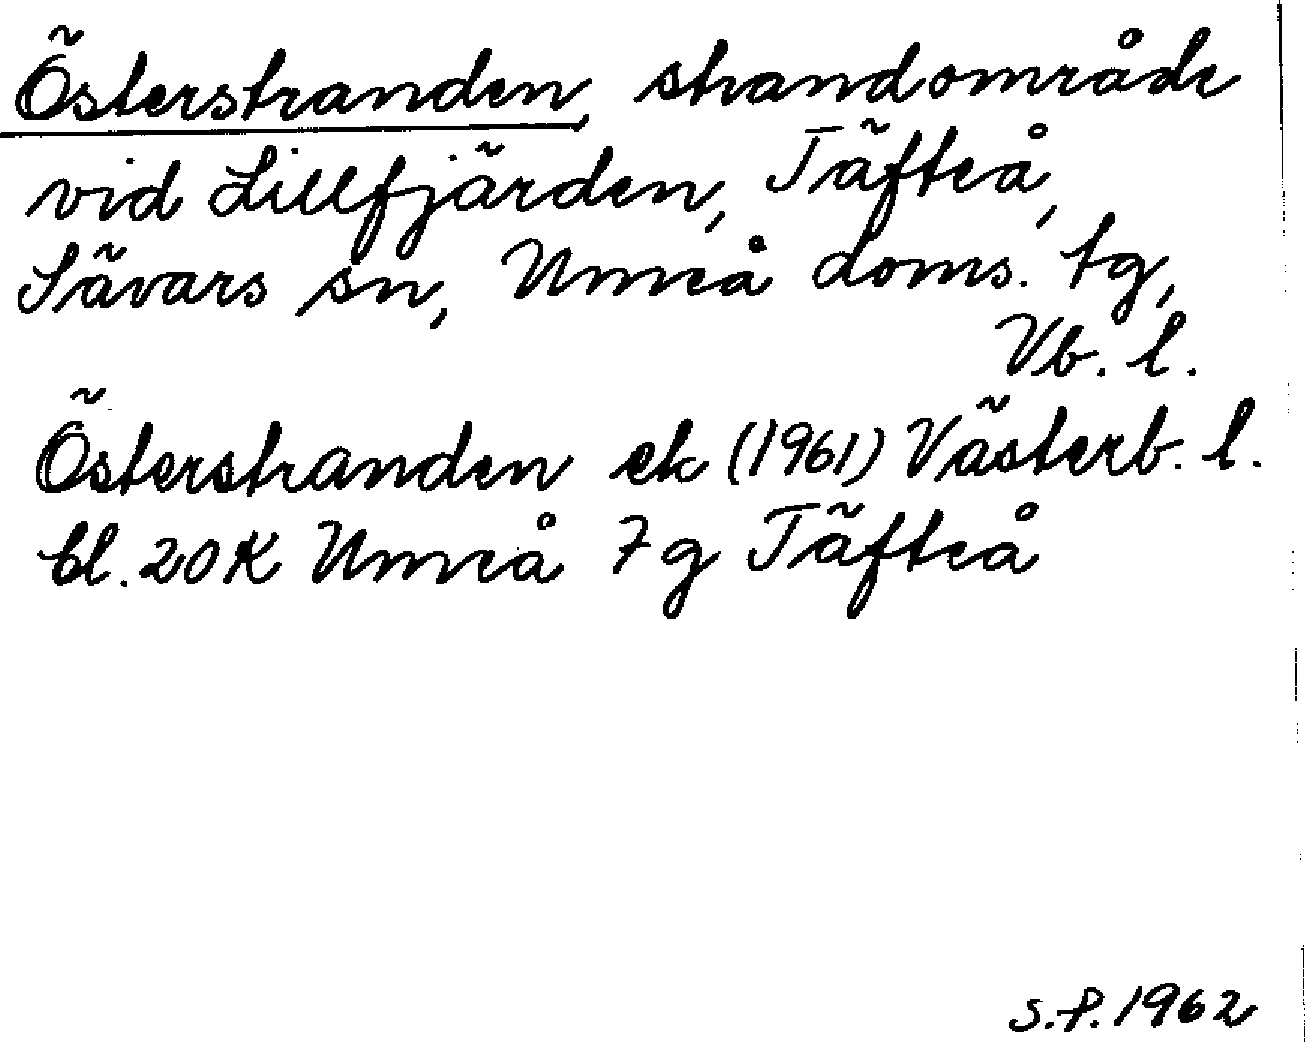 Österstranden, strandområde
vid Lillfjärden, Täfteå,
Sävars sn, Umeå doms. tg,
Vb. l.
Österstranden ek (1961) Västerb. l.
bl. 20K Umeå 7g Täfteå
S.P. 1962